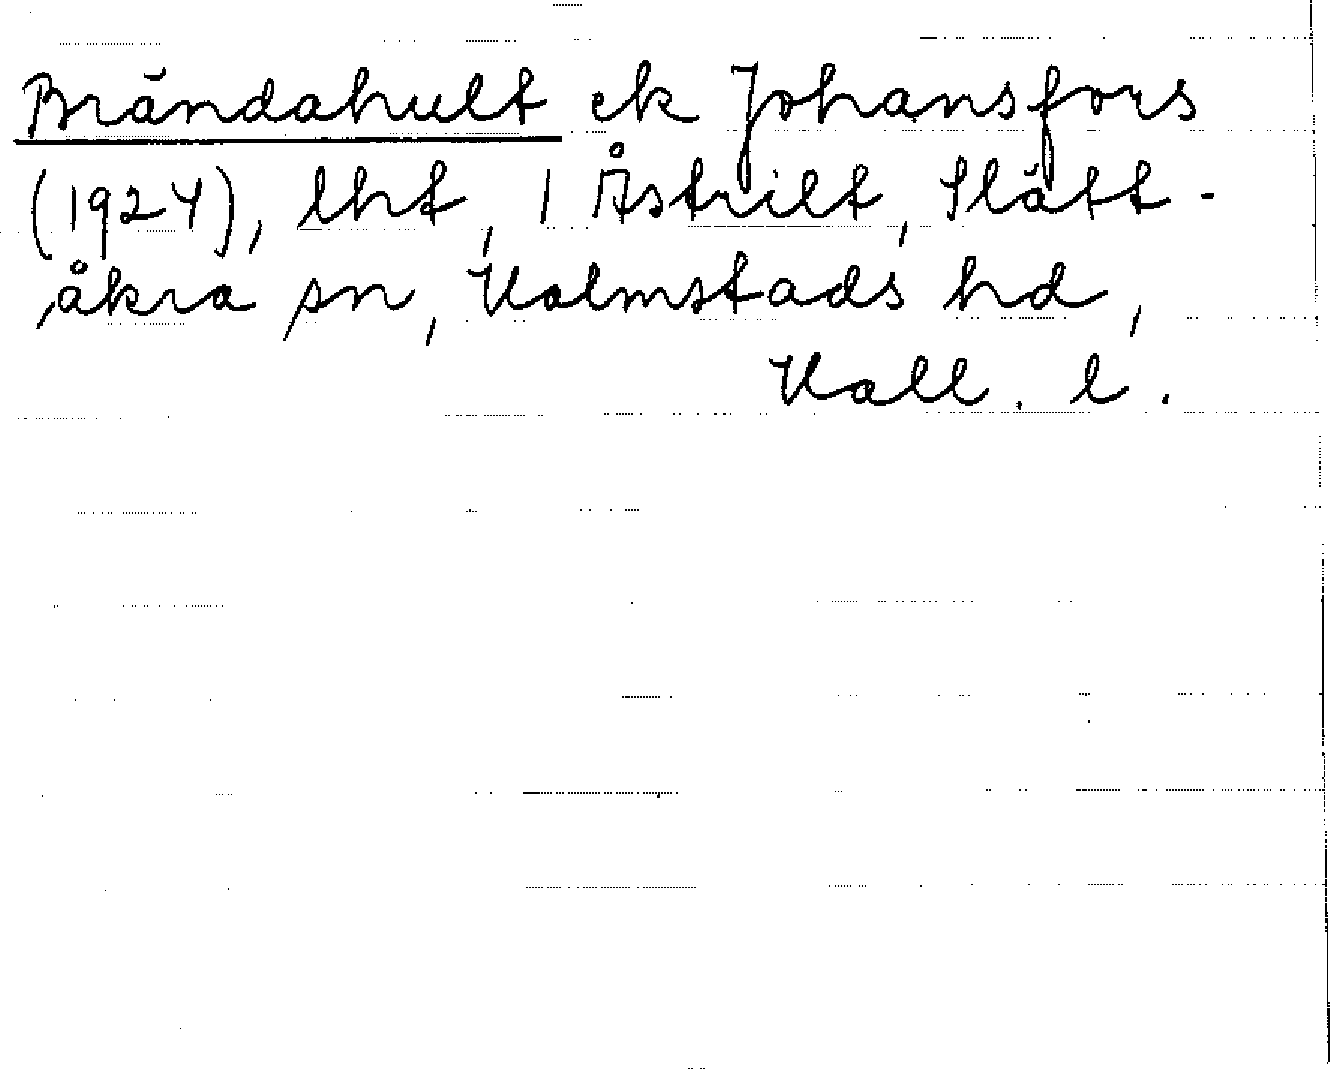 Brändahult ek Johansfors
(1924), lht, 1 Åstrilt, Slätt-
åkra sn, Halmstads hd,
Hall. l.